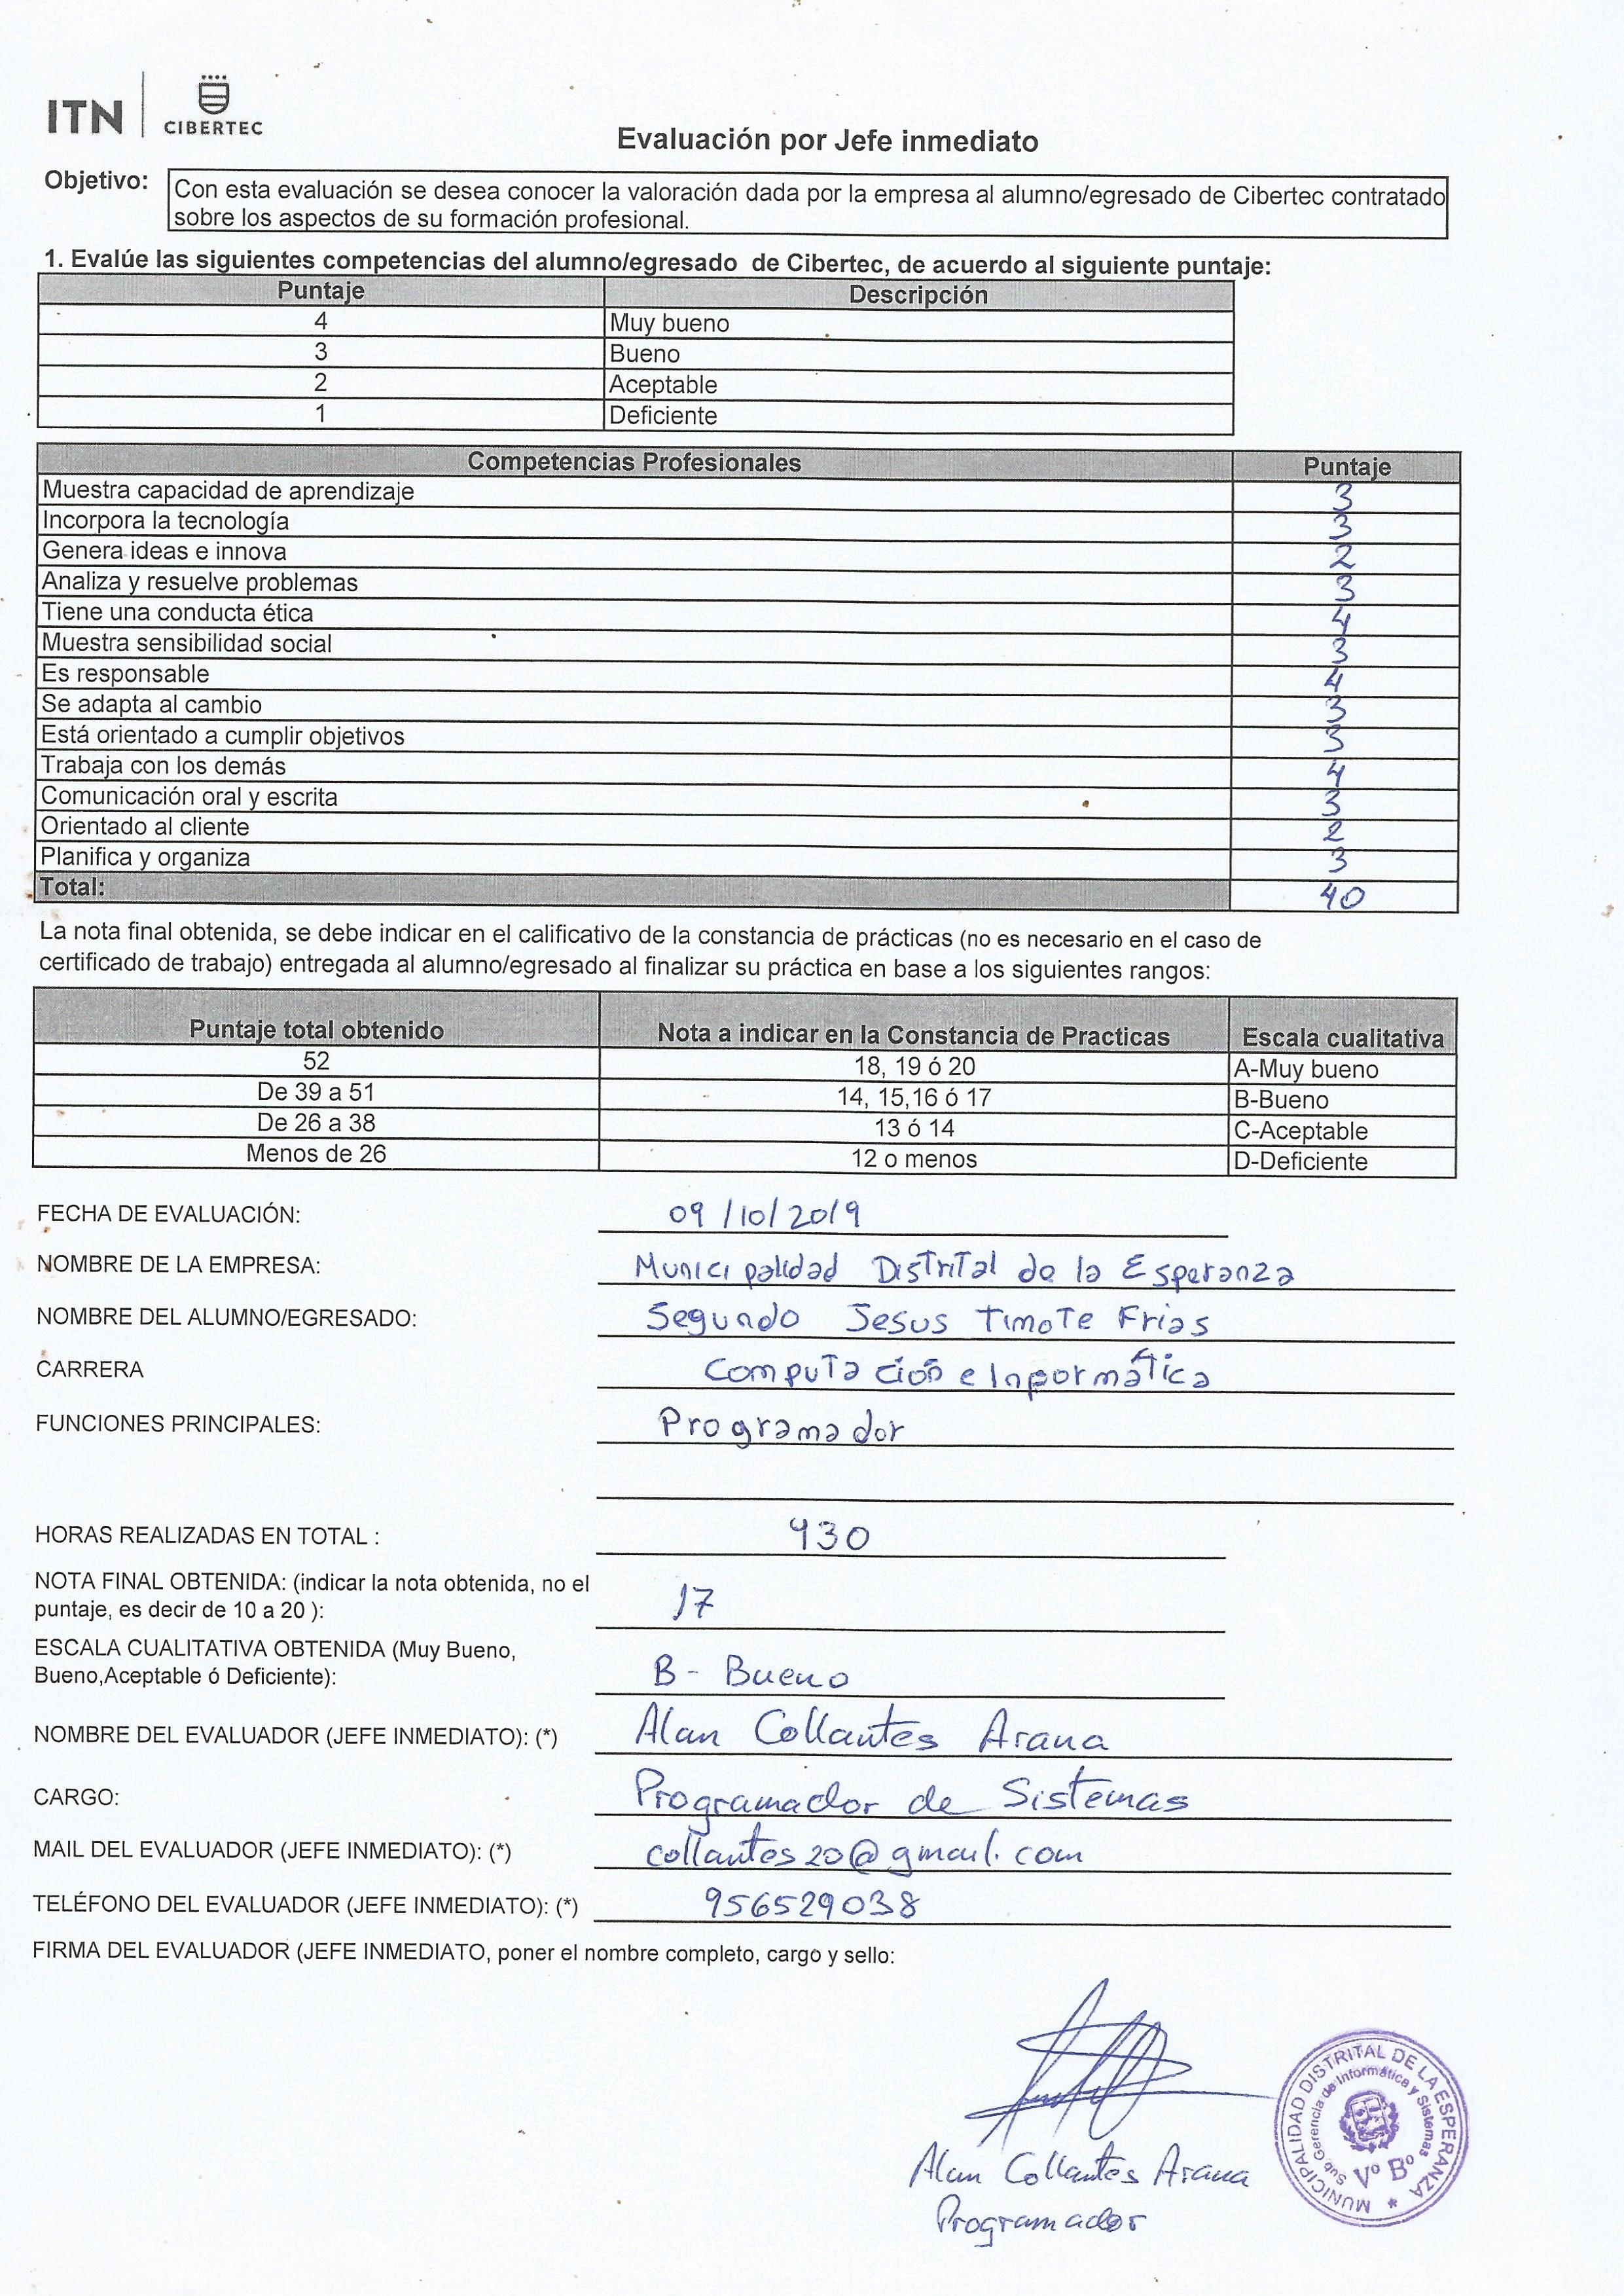 ITN
CIBERTEC
Evaluación por Jefe inmediato
Objetivo:
Con esta evaluación se desea conocer la valoración dada por la empresa al alumno/egresado de Cibertec contratado
sobre los aspectos de su formación profesional.
1. Evalúe las siguientes competencias del alumno/egresado de Cibertec, de acuerdo al siguiente puntaje:
Puntaje Descripción
4 Muy bueno
3 Bueno
2 Aceptable
1 Deficiente
Competencias Profesionales Puntaje
Muestra capacidad de aprendizaje 3
Incorpora la tecnología 3
Genera ideas e innova 2
Analiza y resuelve problemas 3
Tiene una conducta ética 4
Muestra sensibilidad social 3
Es responsable 4
Se adapta al cambio 3
Está orientado a cumplir objetivos 3
Trabaja con los demás 4
Comunicación oral y escrita 3
Orientado al cliente 2
Planifica y organiza 3
Total: 40
La nota final obtenida, se debe indicar en el calificativo de la constancia de prácticas (no es necesario en el caso de
certificado de trabajo) entregada al alumno/egresado al finalizar su práctica en base a los siguientes rangos:
Puntaje total obtenido Nota a indicar en la Constancia de Practicas Escala cualitativa
52 18, 19 ó 20 A-Muy bueno
De 39 a 51 14, 15,16 ó 17 B-Bueno
De 26 a 38 13 ó 14 C-Aceptable
Menos de 26 12 o menos D-Deficiente
FECHA DE EVALUACIÓN: 09/10/2019
NOMBRE DE LA EMPRESA: Municipalidad Distrital de la Esperanza
NOMBRE DEL ALUMNO/EGRESADO: Segundo Jesus Timote Frias
CARRERA Computación e Informática
FUNCIONES PRINCIPALES: Programador
HORAS REALIZADAS EN TOTAL : 430
NOTA FINAL OBTENIDA: (indicar la nota obtenida, no el
puntaje, es decir de 10 a 20 ): 17
ESCALA CUALITATIVA OBTENIDA (Muy Bueno,
Bueno,Aceptable ó Deficiente): B- Bueno
NOMBRE DEL EVALUADOR (JEFE INMEDIATO): (*) Alan Collantes Arana
CARGO: Programador de Sistemas
MAIL DEL EVALUADOR (JEFE INMEDIATO): (*) collantes20@gmail.com
TELÉFONO DEL EVALUADOR (JEFE INMEDIATO): (*) 956529038
FIRMA DEL EVALUADOR (JEFE INMEDIATO, poner el nombre completo, cargo y sello:
Alan Collantes Arana
Programador
MUNICIPALIDAD DISTRITAL DE LA ESPERANZA
Sub Gerencia de Informática y Sistemas
Vº Bº